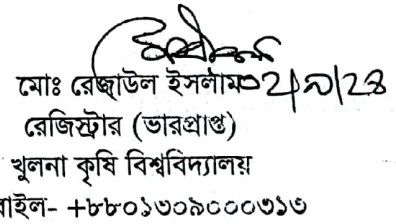 মোঃ রেজাউল ইসলাম
রেজিস্ট্রার (ভারপ্রাপ্ত)
খুলনা কৃষি বিশ্ববিদ্যালয়
বাইল- +৮৮০১৩০৯০০০৩১৩